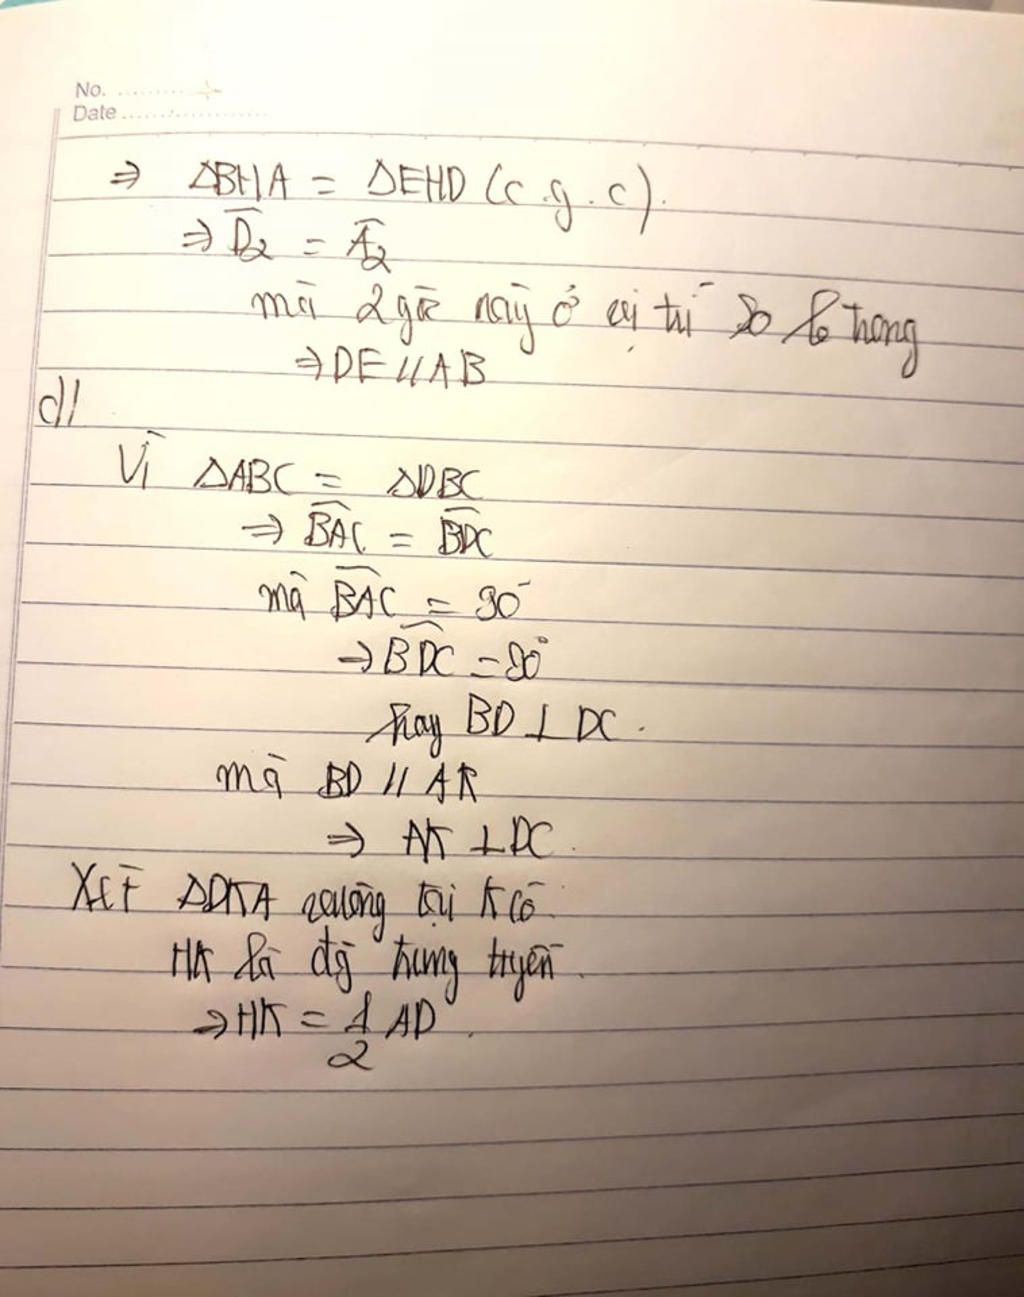 No. ...........
Date ......................
⇒ ΔBHA = ΔEHD (c.g.c).
⇒ D̂₂ = Â₂
mà 2 góc này ở vị trí so le trong
⇒ DE // AB
d/
Vì ΔABC = ΔDBC
⇒ B͡AC = B͡DC
mà B͡AC = 90°
⇒ B͡DC = 90°
hay BD ⊥ DC.
mà BD // AK
⇒ AK ⊥ DC.
Xét ΔDKA vuông tại K có:
HK là đg trung tuyến.
⇒ HK = 1/2 AD.